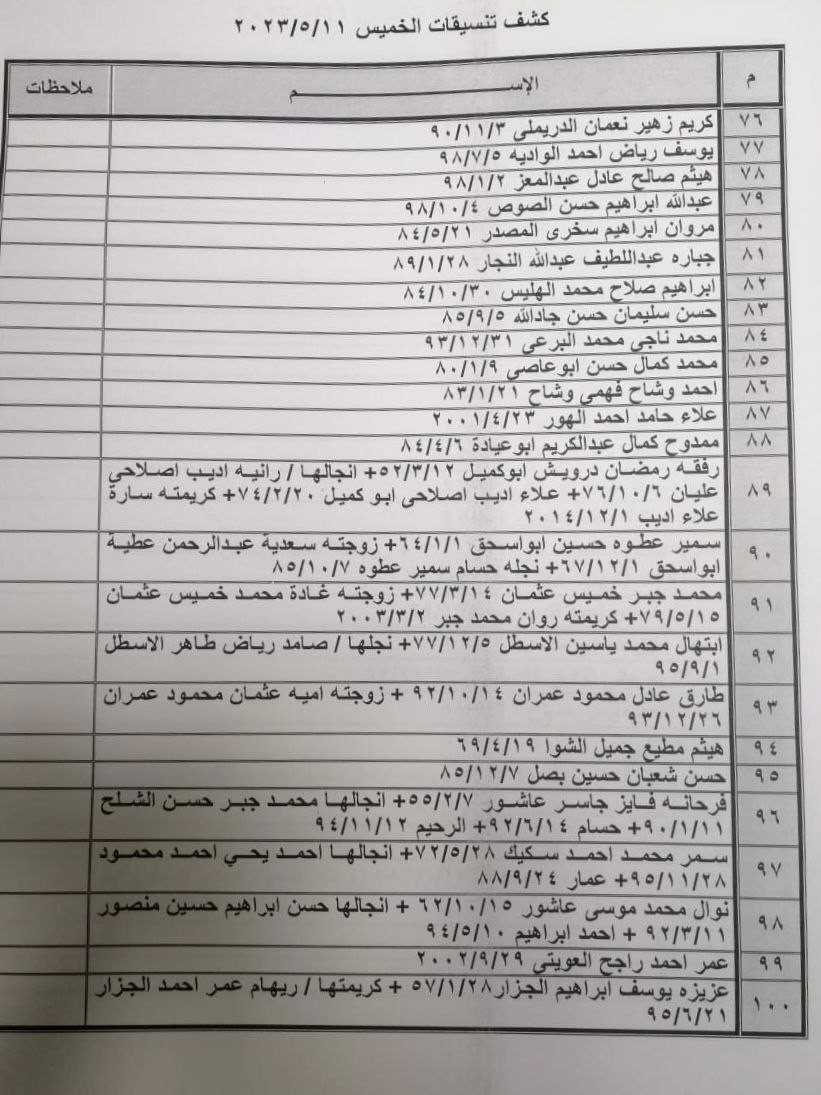 كشف تنسيقات الخميس ٢٠٢٣/٥/١١
م الإســـــــــم ملاحظات
٧٦ كريم زهير نعمان الدريملي ٩٠/١١/٣
٧٧ يوسف رياض احمد الواديه ٩٨/٧/٥
٧٨ هيثم صالح عادل عبدالمعز ٩٨/١/٢
٧٩ عبدالله ابراهيم حسن الصوص ٩٨/١٠/٤
٨٠ مروان ابراهيم سخرى المصدر ٨٤/٥/٢١
٨١ جباره عبداللطيف عبدالله النجار ٨٩/١/٢٨
٨٢ ابراهيم صلاح محمد الهليس ٨٤/١٠/٣٠
٨٣ حسن سليمان حسن جادالله ٨٥/٩/٥
٨٤ محمد ناجي محمد البرعي ٩٣/١٢/٣١
٨٥ محمد كمال حسن ابوعاصي ٨٠/١/٩
٨٦ احمد وشاح فهمي وشاح ٨٣/١/٢١
٨٧ علاء حامد احمد الهور ٢٠٠١/٤/٢٣
٨٨ ممدوح كمال عبدالكريم ابوعيادة ٨٤/٤/٦
٨٩ رفقه رمضان درويش ابوكميل ٥٢/٣/١٢+ انجالها / رانيه اديب اصلاحي
عليان ٧٦/١٠/٦+ علاء اديب اصلاحى ابو كميل ٧٤/٢/٢٠+ كريمته سارة
علاء اديب ٢٠١٤/١٢/١
٩٠ سمير عطوه حسين ابواسحق ٦٤/١/١+ زوجته سعدية عبدالرحمن عطية
ابواسحق ٦٧/١٢/١+ نجله حسام سمير عطوه ٨٥/١٠/٧
٩١ محمد جبر خميس عثمان ٧٧/٣/١٤+ زوجته غادة محمد خميس عثمان
٧٩/٥/١٥+ كريمته روان محمد جبر ٢٠٠٣/٣/٢
٩٢ ابتهال محمد ياسين الاسطل ٧٧/١٢/٥+ نجلها / صامد رياض طاهر الاسطل
٩٥/٩/١
٩٣ طارق عادل محمود عمران ٩٢/١٠/١٤ + زوجته اميه عثمان محمود عمران
٩٣/١٢/٢٦
٩٤ هيثم مطيع جميل الشوا ٦٩/٤/١٩
٩٥ حسن شعبان حسين بصل ٨٥/١٢/٧
٩٦ فرحانه فايز جاسر عاشور ٥٥/٢/٧+ انجالها محمد جبر حسن الشلح
٩٠/١/١١+ حسام ٩٢/٦/١٤+ الرحيم ٩٤/١١/١٢
٩٧ سمر محمد احمد سكيك ٧٢/٥/٢٨+ انجالها احمد يحي احمد محمود
٩٥/١١/٢٨+ عمار ٨٨/٩/٢٤
٩٨ نوال محمد موسى عاشور ٦٢/١٠/١٥ + انجالها حسن ابراهيم حسين منصور
٩٢/٣/١١ + احمد ابراهيم ٩٤/٥/١٠
٩٩ عمر احمد راجح العويتي ٢٠٠٢/٩/٢٩
١٠٠ عزيزه يوسف ابراهيم الجزار٥٧/١/٢٨ + كريمتها / ريهام عمر احمد الجزار
٩٥/٦/٢١